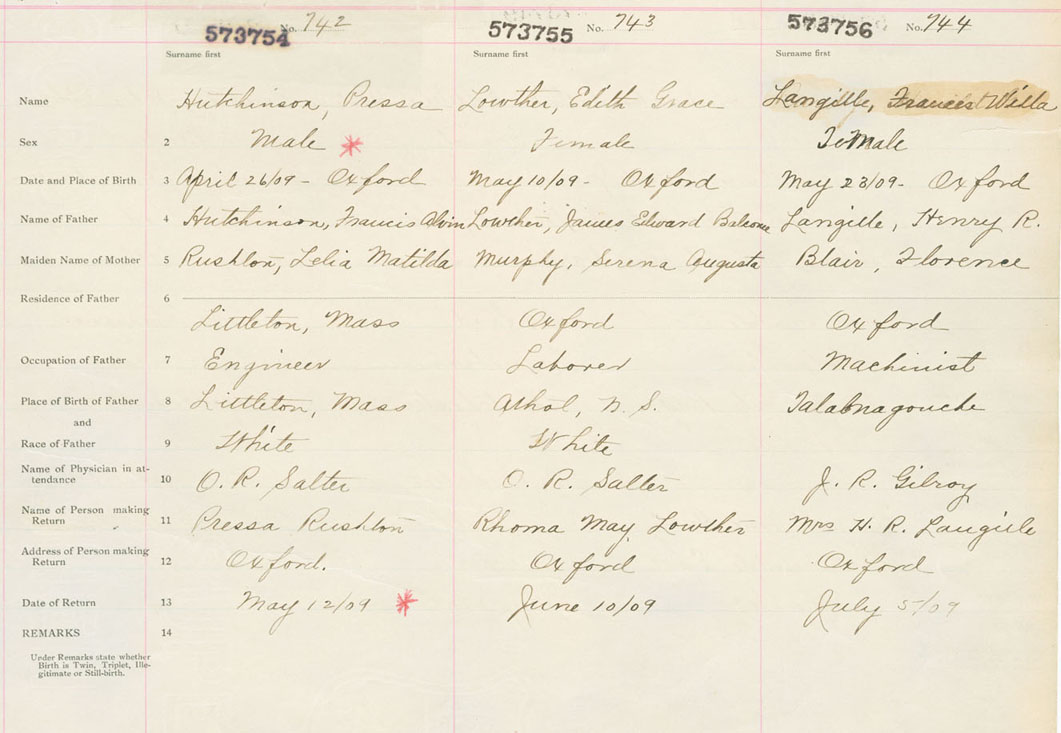 573754 No. 742 573755 No. 743 573756 No. 744
Surname first Surname first Surname first
Name Hutchinson, Pressa Lowther, Edith Grace Langille, Frances Willa
Sex 2 Male Female Female
Date and Place of Birth 3 April 26/09 - Oxford May 10/09 - Oxford May 23/09 - Oxford
Name of Father 4 Hutchinson, Francis Alvin Lowther, James Edward Langille, Henry R.
Maiden Name of Mother 5 Rushton, Lelia Matilda Murphy, Serena Augusta Blair, Florence
Residence of Father 6
Littleton, Mass Oxford Oxford
Occupation of Father 7 Engineer Laborer Machinist
Place of Birth of Father 8 Littleton, Mass Athol, N. S. Tatamagouche
and
Race of Father 9 White White
Name of Physician in at-
tendance 10 O. R. Salter O. R. Salter J. R. Gilroy
Name of Person making
Return 11 Pressa Rushton Rhoma May Lowther Mrs H. R. Langille
Address of Person making
Return 12 Oxford. Oxford Oxford
Date of Return 13 May 12/09 June 10/09 July 5/09
REMARKS 14
Under Remarks state whether
Birth is Twin, Triplet, Ille-
gitimate or Still-birth.